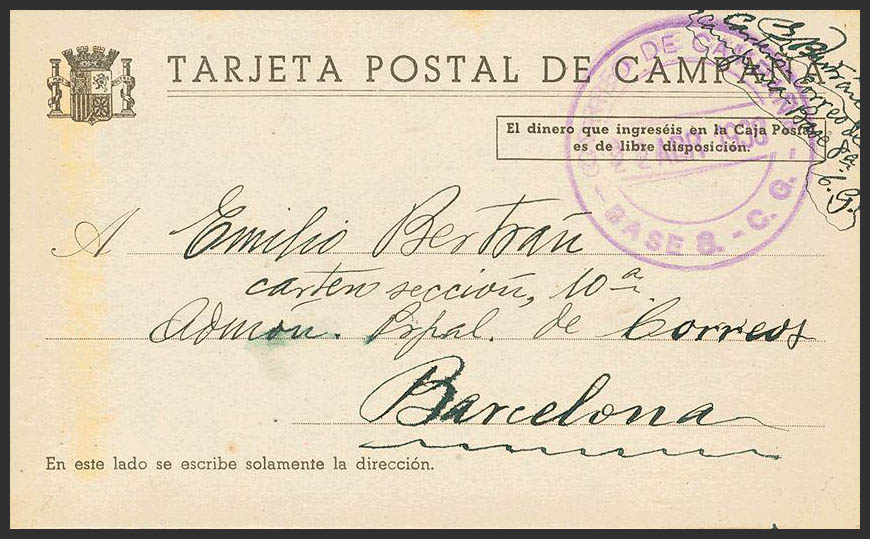 TARJETA POSTAL DE CAMPAÑA
El dinero que ingreséis en la Caja Postal
es de libre disposición.
CORREO DE CAMPAÑA
ABR. 1938
BASE 8. - C. G.
E. Bertrán
Correo de
Campaña - Base 8ª
C. G.
A Emilio Bertrán
cartero sección, 10ª
Admón. Prpal. de Correos
Barcelona
En este lado se escribe solamente la dirección.